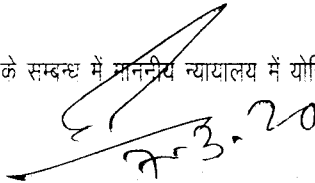 के सम्बन्ध में माननीय न्यायालय में
7-3-20